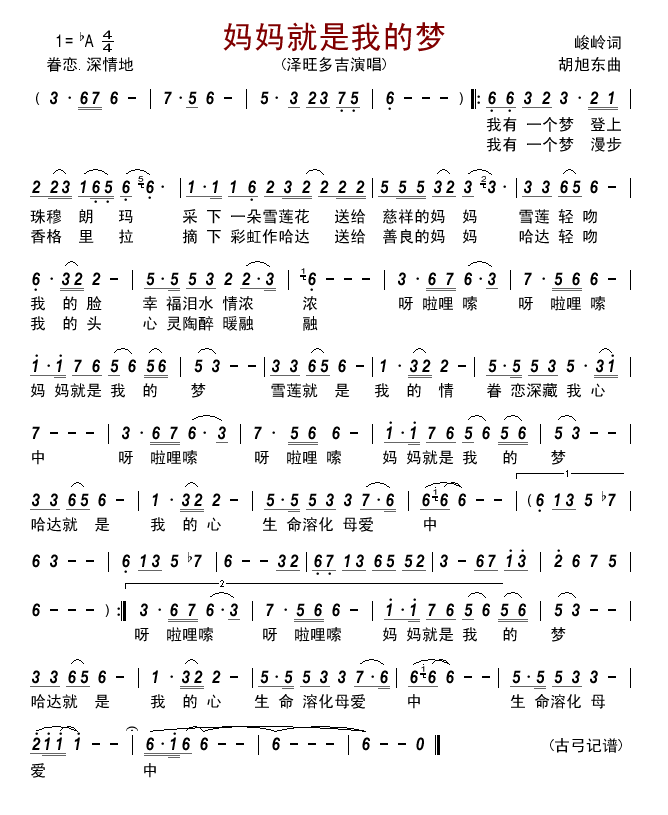 妈妈就是我的梦
1= ♭A 4/4
峻岭词
眷恋. 深情地
(泽旺多吉演唱)
胡旭东曲
( 3 · 67 6 - | 7 · 5 6 - | 5 · 3 23 75 | 6 - - - ) |: 6 6 3 2 3 · 21 |
我有 一个梦 登上
我有 一个梦 漫步
2 23 165 6 5 6 · | 1·1 1 6 2 3 2 2 2 2 | 5 5 5 3 2 3 2 3 · | 3 3 65 6 - |
珠穆 朗 玛 采 下 一朵雪莲花 送给 慈祥的妈 妈 雪莲 轻 吻
香格 里 拉 摘 下 彩虹作哈达 送给 善良的妈 妈 哈达 轻 吻
6 · 32 2 - | 5·5 53 2 2·3 | 1 6 - - - | 3 · 67 6·3 | 7 · 5 66 - |
我 的 脸 幸 福泪水 情浓 浓 呀 啦哩 嗦 呀 啦哩 嗦
我 的 头 心 灵陶醉 暖融 融
1·1 76 56 56 | 53 - - | 33 65 6 - | 1 · 32 2 - | 5·5 53 5·31 |
妈 妈就是 我 的 梦 雪莲就 是 我 的 情 眷 恋深藏 我 心
7 - - - | 3 · 67 6·3 | 7 · 5 6 6 - | 1·1 76 56 56 | 53 - - |
中 呀 啦哩嗦 呀 啦哩 嗦 妈 妈就是 我 的 梦
1
33 65 6 - | 1 · 32 2 - | 5·5 53 3 7·6 | 6 1 6 6 - - | (6 13 5 ♭7 |
哈达就 是 我 的 心 生 命溶化 母爱 中
6 3 - - | 6 13 5 ♭7 | 6 - - 32 | 67 13 65 52 | 3 - 67 13 | 2 6 7 5 |
2
6 - - - ) :| 3 · 67 6·3 | 7 · 5 66 - | 1·1 76 56 56 | 53 - - |
呀 啦哩嗦 呀 啦哩嗦 妈 妈就是 我 的 梦
33 65 6 - | 1 · 32 2 - | 5·5 53 3 7·6 | 6 1 6 6 - - | 5·5 53 5 |
哈达就 是 我 的 心 生 命 溶化母爱 中 生 命溶化 母
2 1 1 1 - - | 6·1 6 6 - - | 6 - - - | 6 - - 0 ‖
(古弓记谱)
爱 中